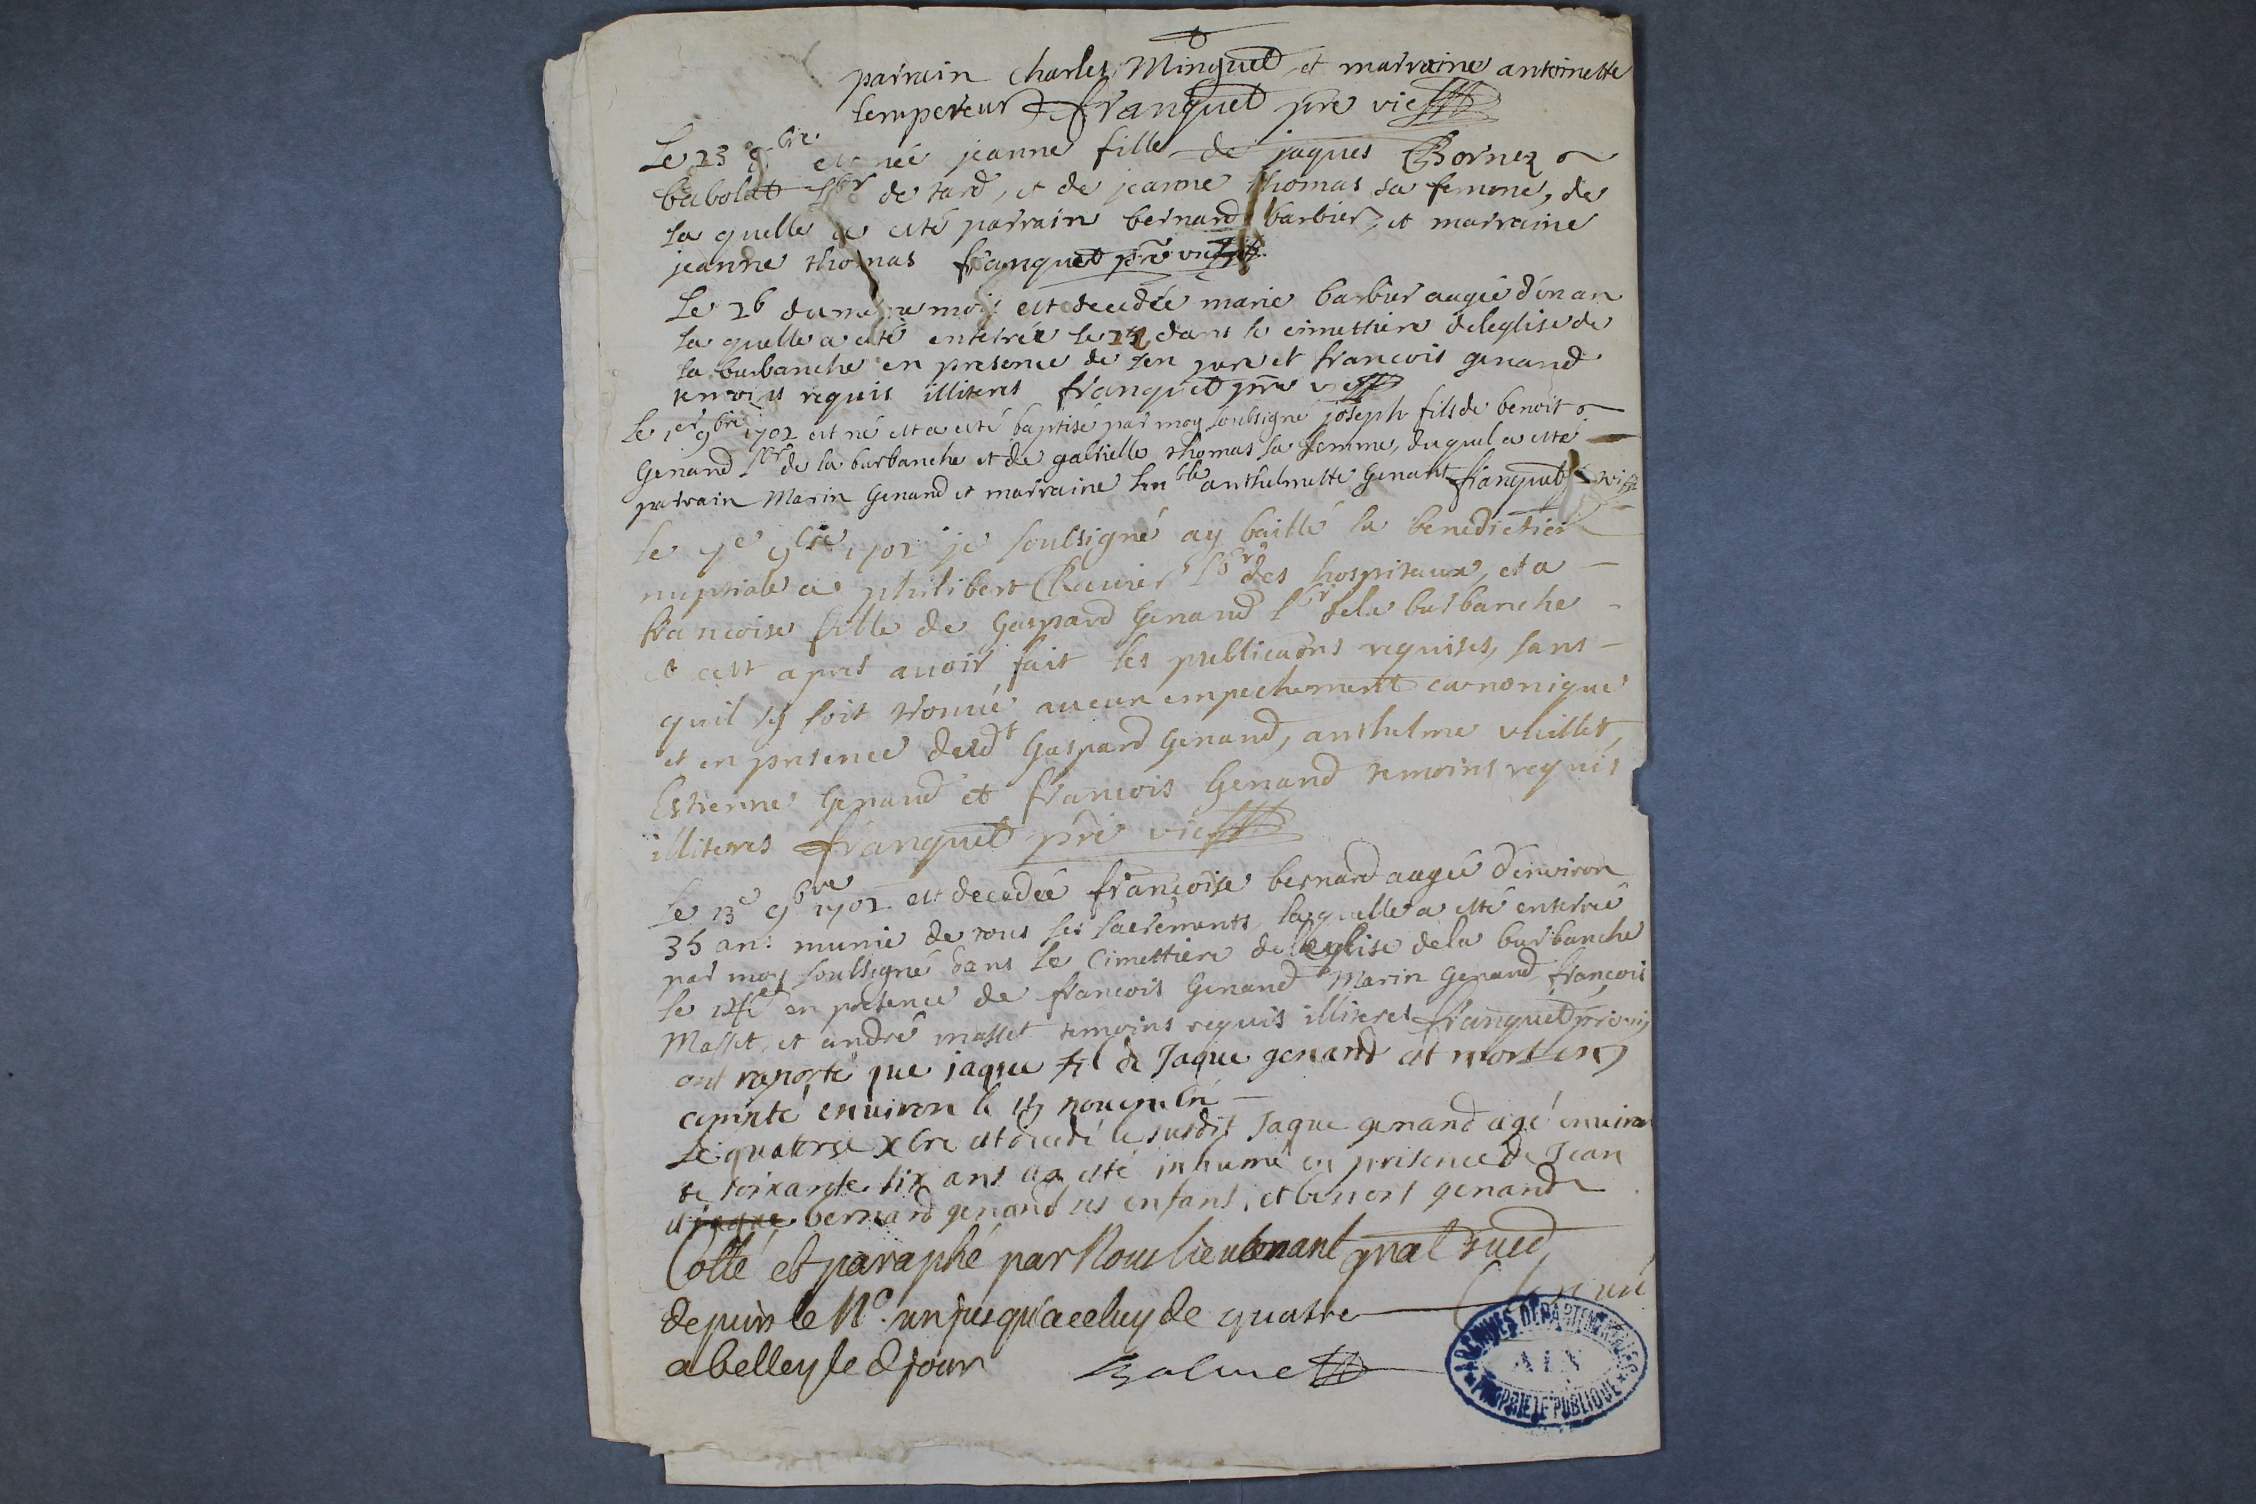 parrain charles Minguet et marraine antoinette
lempereur franquet pre vic
Le 23 est née jeanne fille de jaques Bornez
babolat hbr de tard, et de jeanne thomas sa femme, de
la quelle a esté parrain bernard barbier, et marraine
jeanne thomas franquet pre vic
Le 26 du mesme mois est decedée marie barbier augée d'un an
la quelle a esté enterrée le dans le cimettiere de leglise de
la burbanche en presence de son pere et francois genand
temoins requis illiteres franquet pre vic
Le 1er 9bre 1702 est né et a esté baptisé par moy soubsigné joseph fils de benoit
Genand hbr de la burbanche et de gabrielle thomas sa femme, duquel a esté
parrain Marin Genand et marraine hnble anthelmette Genant franquet vic
le 7e 9bre 1702 je soubsigné ay baillé la benediction
nuptiale a philibert hbr des hospitaux, et a
francoise fille de Gaspard Genand hbr de la burbanche
et cest apres avoir fait les publicaons requises, sans
quil sy soit trouvé aucun empechement canonique
et en presence dudt Gaspard Genand, anthelme vuillet,
Estienne Genand et francois Genand temoins requis
illiteres franquet pre vic
Le 13e 9bre 1702 est decedée françoise bernard augée d'environ
35 ans munie de tous ses sacrements, laquelle a esté enterrée
par moy soubsigné dans le Cimettiere de leglise de la burbanche
le 14e en presence de francois Genand Marin Genand, françois
Masset, et andré masset temoins requis illiteres franquet pre vic
ont raporté que jaque fil de Jaque genand est mort en
comté environ le 15 novembre
Le quatorse xbre est decedé le susdit Jaque genand agé environ
de soixante six ans et a esté inhumé en presence de Jean
et jaque bernard genand ses enfans, et benoit genand
Cotté et paraphé par Nous lieutenant gnal
depuis le No. un jusqu'a celluy de quatre
a belley le d jour
ARCHIVES DEPARTEMENTALES
AIN
PROPRIETE PUBLIQUE